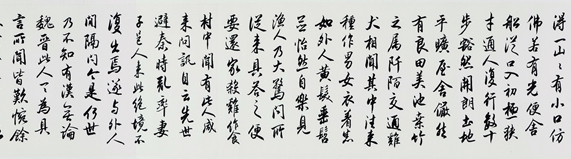 得一山〻有小口仿
佛若有光便舍
船從口入初極狹
才通人復行數十
步豁然開朗土地
平曠屋舍儼然
有良田美池桑竹
之属阡陌交通雞
犬相聞其中往来
種作男女衣着悉
如外人黄髮垂髫
並怡然自樂見
漁人乃大驚問所
從来具答之便
要還家殺雞作食
村中聞有此人咸
来問訊自云先世
避秦時亂率妻
子邑人来此絶境不
復出焉遂与外人
間隔問今是何世
乃不知有漢無論
魏晉此人一一為具
言所聞皆歎惋餘